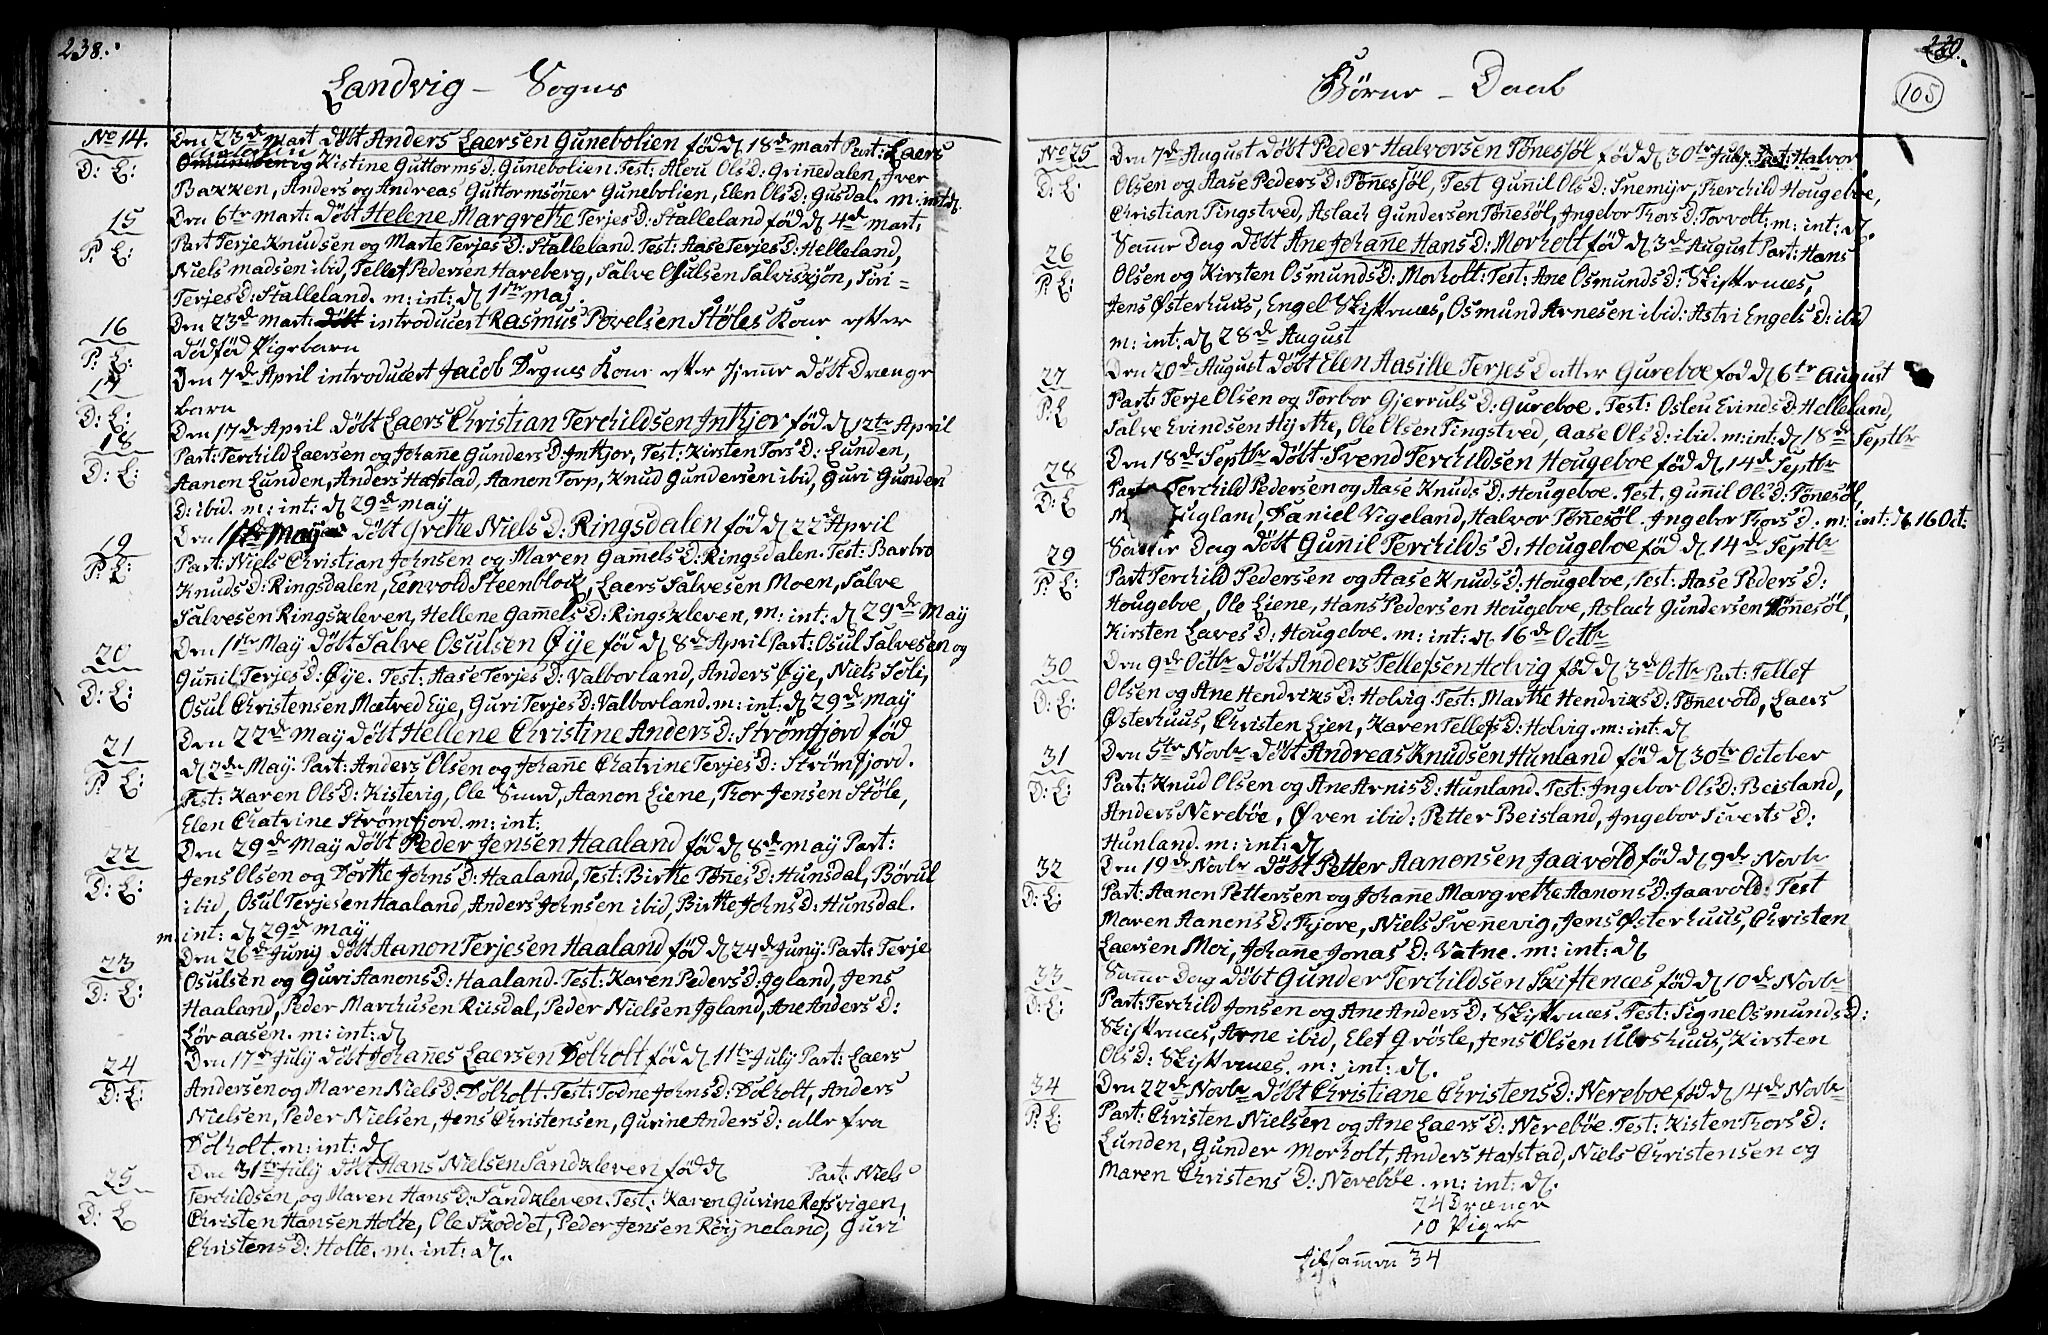 238.
Landvig – Sogns
No 14.
D: E:
Den 23de Mart döbt Anders Laersen Gunebolien född d 18de Mart Part: Laers
og Kistine GuttormsD: Gunebolien. Test: Alou OlsD: Grinnedalen, Iver
Baxxen, Anders og Andreas Guttormsönner Gunebolien, Elen OlsD: Gusdal. m: int: d.
15
P: E:
Den 6te Mart: döbt Helene Margrethe TerjesD: Stalleland född d 4de Mart.
Part Terje Knudsen og Marte TerjesD: Stalleland. Test: Aase TerjesD: Helleland,
Niels Madsen ibid, Tellef Pedersen Hareberg, Salve Osulsen Salvisxjön, Siri-
TerjesD: Stalleland. m: int: d 1ste Maj.
16
P: E:
Den 23de Mart: döbt introducert Rasmus Povelsen Stöles Kone efter
dödfød Pigebarn
17
D: E:
Den 7de April introducert Jacob Degnes Kone efter hjemme döbt Drænge
barn
18
D: E:
Den 17de April döbt Laers Christian Terchildsen Intkjor född d 12te April
Part: Terchild Laersen og Johanne GundersD: Intkjor, Test: Kirsten TorsD: Lunden,
Aanon Lunden, Anders Hafstad, Aanon Torp, Knud Gundersen ibid, Guri Gunders
D: ibid. m: int: d 29de May
19
P: E:
Den 1ste May döbt Grethe NielsD: Ringsdalen född d 22de April
Part: Niels Christian Johnsen og Maren GamelsD: Ringsdalen. Test: Barbro
KnudsD: Ringsdalen, Eenvold Steenblok, Laers Salvesen Moen, Salve
Salvesen Ringsxleven, Hellene GamelsD: Ringsxleven, m: int: d 29de May
20
D: E:
Den 1ste May döbt Salve Osulsen Øÿe född d 8de April Part: Osul Salvesen og
Gunnil TerjesD: Øÿe. Test: Aase TerjesD: Valborland, Anders Øÿe, Niels Söli,
Osul Christensen Mætved Eije, Guri TerjesD: Valborland. m: int: d 29de May
21
P: E:
Den 22de May döbt Hellene Christine AndersD: Strömfjord född
d 2de May. Part: Anders Olsen og Johanne Chatrine TerjesD: Strömfjord.
Test: Karen OlsD: Kistevig, Ole Sund, Aanon Liene, Thor Jensen Stöle,
Elen Chatrine Strömfjord. m: int:
22
D: E:
Den 29de May döbt Peder Jensen Haaland född d 8de May Part:
Jens Olsen og Dorthe JohnsD: Haaland, Test: Birthe TönnesD: Hunsdal, Börul
ibid, Osul Terjesen Haaland, Anders Johnsen ibid, Birthe JohnsD: Hunsdal.
m. int: d 29de May
23
D: E:
Den 26de Junij döbt Aanon Terjesen Haaland född d 24de Junij. Part: Terje
Osulsen og Guri AanonsD: Haaland. Test: Karen PedersD: Igland, Jens
Haaland, Peder Marchusen Riisdal, Peder Nielsen Igland, Ane AndersD:
Löraasen. m: int: d
24
D: E:
Den 17de Julij döbt Johannes Laersen Dolholt född d 11te Julij Part: Laers
Andersen og Maren NielsD: Dolholt. Test: Todne JohnsD: Dolholt, Anders
Nielsen, Peder Nielsen, Jens Christensen, Gurine AndersD: alle fra
Dolholt. m: int: d
25
D: E
Den 31te Julij döbt Hans Nielsen Sandxleven född d Part: Niels
Terchildsen, og Maren HansD: Sandxleven. Test: Karen Gurine Refsvigen,
Christen Hansen Holte, Ole Skoddet, Peder Jensen Röijneland, Guri
ChristensD: Holte. m. int: d.
Börne – Daab
105
No 25
D: E:
Den 7de August döbt Peder Halvorsen Tönnesöl född d 30te July. Part: Halvor
Olsen og Aase PedersD: Tönnesöl, Test Gunnil OlsD: Snemÿr, Terchild Hougeboe,
Christian Tingstved, Aslach Gundersen Tönnesöl, Ingebor ThorsD: Torvolt: m: int: d.
26
P: E:
Samme Dag döbt Ane Johanne HansD: Morholt född d 3de August Part: Hans
Olsen og Kirsten OsmundsD: Morholt: Test: Ane OsmundsD: Skiftenæs,
Jens Østerhuus, Engel Skiftenæs, Osmund Arnesen ibid: Astri EngelsD: ibid
m: int: d 28de August
27
P: E
Den 20de August döbt Elen Aasille Terjes Datter Gureboe född d 6te August
Part: Terje Olsen og Torbor GjerrulsD: Gureboe. Test: Oslou EvindsD: Helleland,
Salve Evindsen Hijrthe, Ole Olsen Tingstved, Aase OlsD: ibid. m: int: d 18de Septbr
28
D: E
Den 18de Septbr döbt Svend Terchildsen Hougeboe född d 14de Septbr
Part: Terchild Pedersen og Aase KnudsD: Hougeboe. Test. Gunnil OlsD: Tönnesöl,
ugland, Daniel Vigeland, Halvor Tönnesöl. Ingebor ThorsD: m: int: d 16 Oct:
29
P: E:
Samme Dag döbt Gunnil TerchildsD: Hougeboe född d 14de Septbr
Part Terchild Pedersen og Aase KnudsD: Hougeboe, Test: Aase PedersD:
Hougeboe, Ole Liene, Hans Pedersen Hougeboe, Aslach Gundersen Tönnesöl,
Kirsten LavesD: Hougeboe. m: int: d. 16de Octbr
30
D: E:
Den 9de Octbr döbt Anders Tellefsen Holvig född d 3de Octbr Part: Tellef
Olsen og Ane HendrixsD: Holvig. Test: Marthe HendrixsD: Tönnevold, Laers
Østerhuus, Christen Lien, Karen TellefsD: Holvig. m: int: d
31
D: E:
Den 5te Novbr döbt Andreas Knudsen Hunland född d 30te October
Part: Knud Olsen og Ane ArnisD: Hunland. Test: Ingebor OlsD: Beisland,
Anders Nereböe, Øven ibid: Petter Beisland, Ingebor SivertsD:
Hunland. m: int: d
32
D: E:
Den 19de Novbr döbt Petter Aanonsen Jaavold född d 9de Novbr
Part: Aanon Pettersen og Johanne Margrethe AanonsD: Jaavold: Test
Maren AanonsD: Fjore, Niels Svennevig, Jens Østerhuus, Christen
Laersen Moi, Johanne JonasD: Vatne. m: int: d
33
D: E:
Samme Dag döbt Gunder Terchildsen Skiftenæs född d 10de Novbr
Part: Terchild Jonsen og Ane AndersD: Skiftenæs. Test: Signe OsmundsD:
Skiftenæs, Arne ibid, Elef Gröste, Jens Olsen huus, Kirsten
OlsD: Skiftenæs. m: int: d.
34
P: E:
Den 22de Novbr döbt Christiane ChristensD: Nereboe född d 14de Novbr
Part: Christen Nielsen og Ane LaersD: Nereböe. Test: Kisten ThorsD:
Lunden, Gunder Morholt, Anders Hafstad, Niels Christensen og
Maren ChristensD: Nereböe. m: int: d.
24 Drænge
10 Piger
tilsammen 34